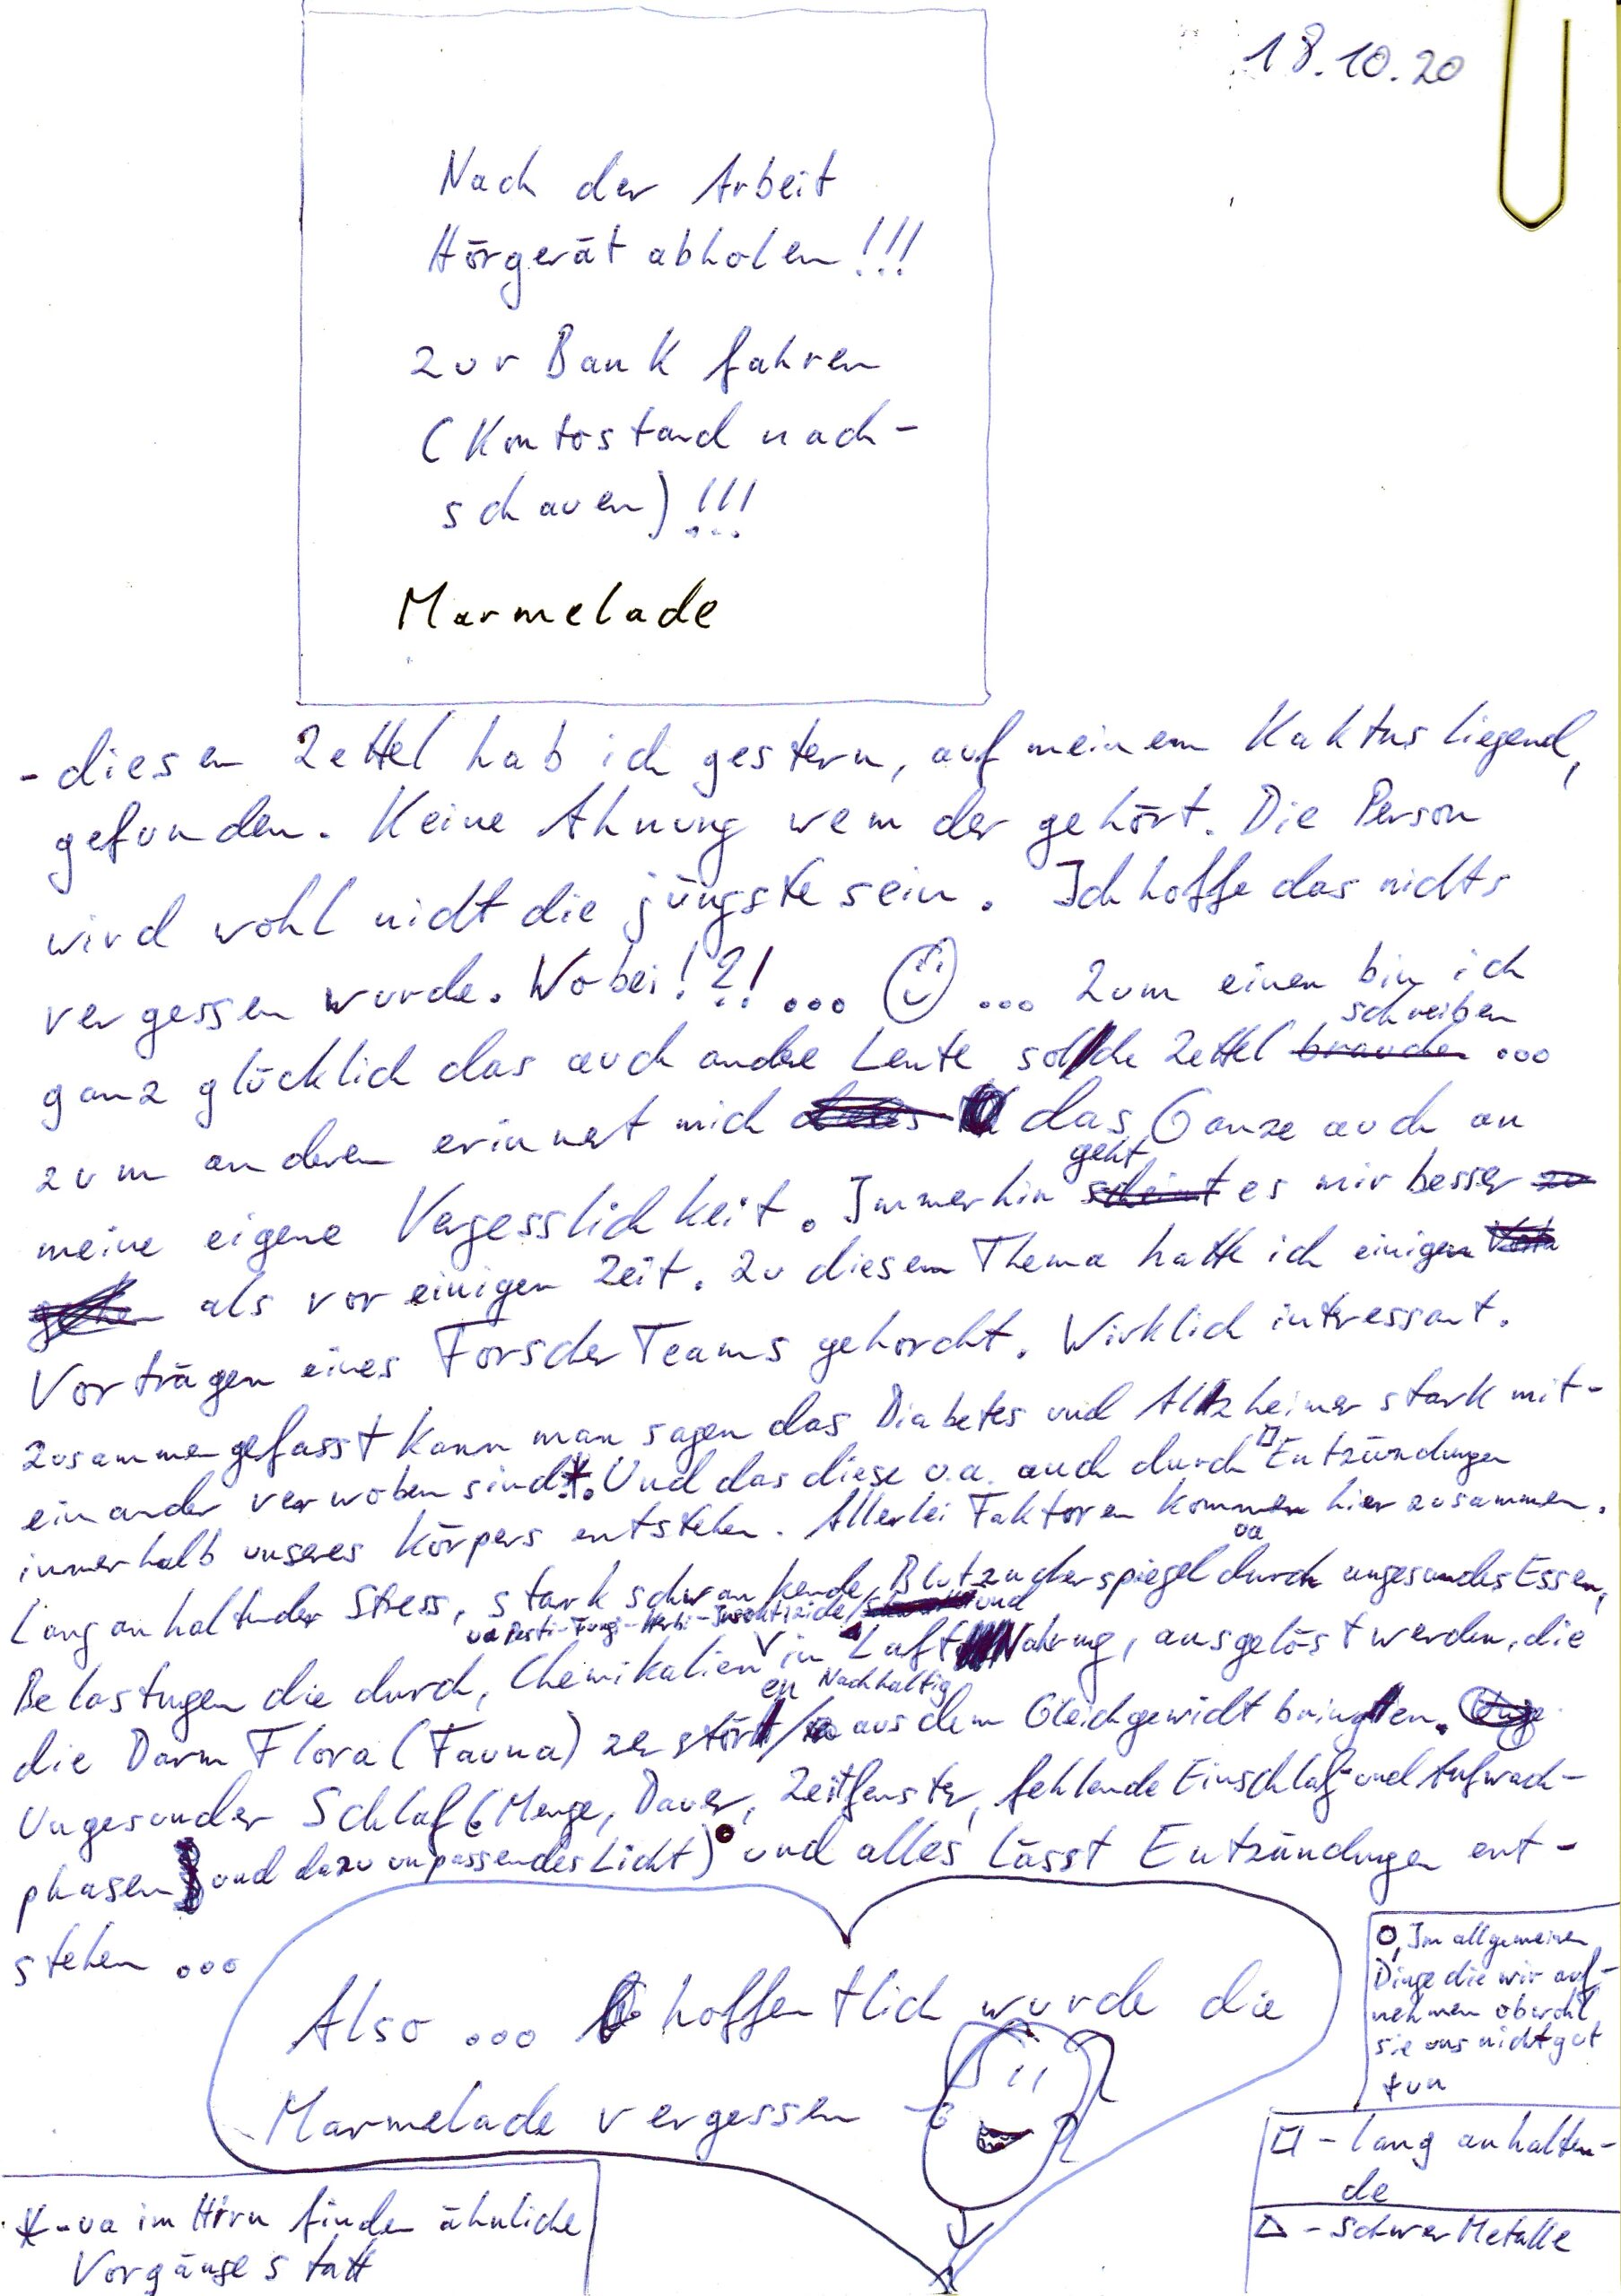 18.10.20
Nach der Arbeit
Hörgerät abholen!!!
zur Bank fahren
(Kontostand nach-
schauen)!!!
Marmelade
- diesen Zettel hab ich gestern, auf meinem Kaktus liegend,
gefunden. Keine Ahnung wem der gehört. Die Person
wird wohl nicht die jüngste sein. Ich hoffe das nichts
vergessen wurde. Wobei!?!... ... Zum einen bin ich
schreiben
ganz glücklich das auch andere Leute solche Zettel brauchen ...
zum anderen erinnert mich das Ganze auch an
geht
meine eigene Vergesslichkeit. Immerhin scheint es mir besser zu
gehen als vor einigen Zeit. Zu diesem Thema hatte ich einigen
Vorträgen eines Forscher Teams gehorcht. Wirklich interessant.
Zusammengefasst kann man sagen das Diabetes und Alzheimer stark mit-
einander verwoben sind*. Und das diese u.a. auch durch □Entzündungen
innerhalb unseres Körpers entstehen. Allerlei Faktoren kommen hier zusammen.
ua
Lang anhaltender Stress, stark schwankende Blutzuckerspiegel durch ungesundes Essen,
ua Pesti-Fungi-Herbi-Insektizide/ und
Belastungen die durch, Chemikalien in △Luft Nahrung, ausgelöst werden, die
en Nachhaltig
die Darm Flora (Fauna) zerstör/ aus dem Gleichgewicht bringen.
Ungesunder Schlaf (Menge, Dauer, Zeitfenster, fehlende Einschlaf- und Aufwach-
phasen und dazu unpassendes Licht)° und alles lässt Entzündungen ent-
stehen ...
Also ... hoffentlich wurde die
Marmelade vergessen
O, Im allgemeinen
Dinge die wir auf-
nehmen obwohl
sie uns nicht gut
tun
□ - lang anhalten-
de
△ - Schwer Metalle
* - ua im Hirn finden ähnliche
Vorgänge statt